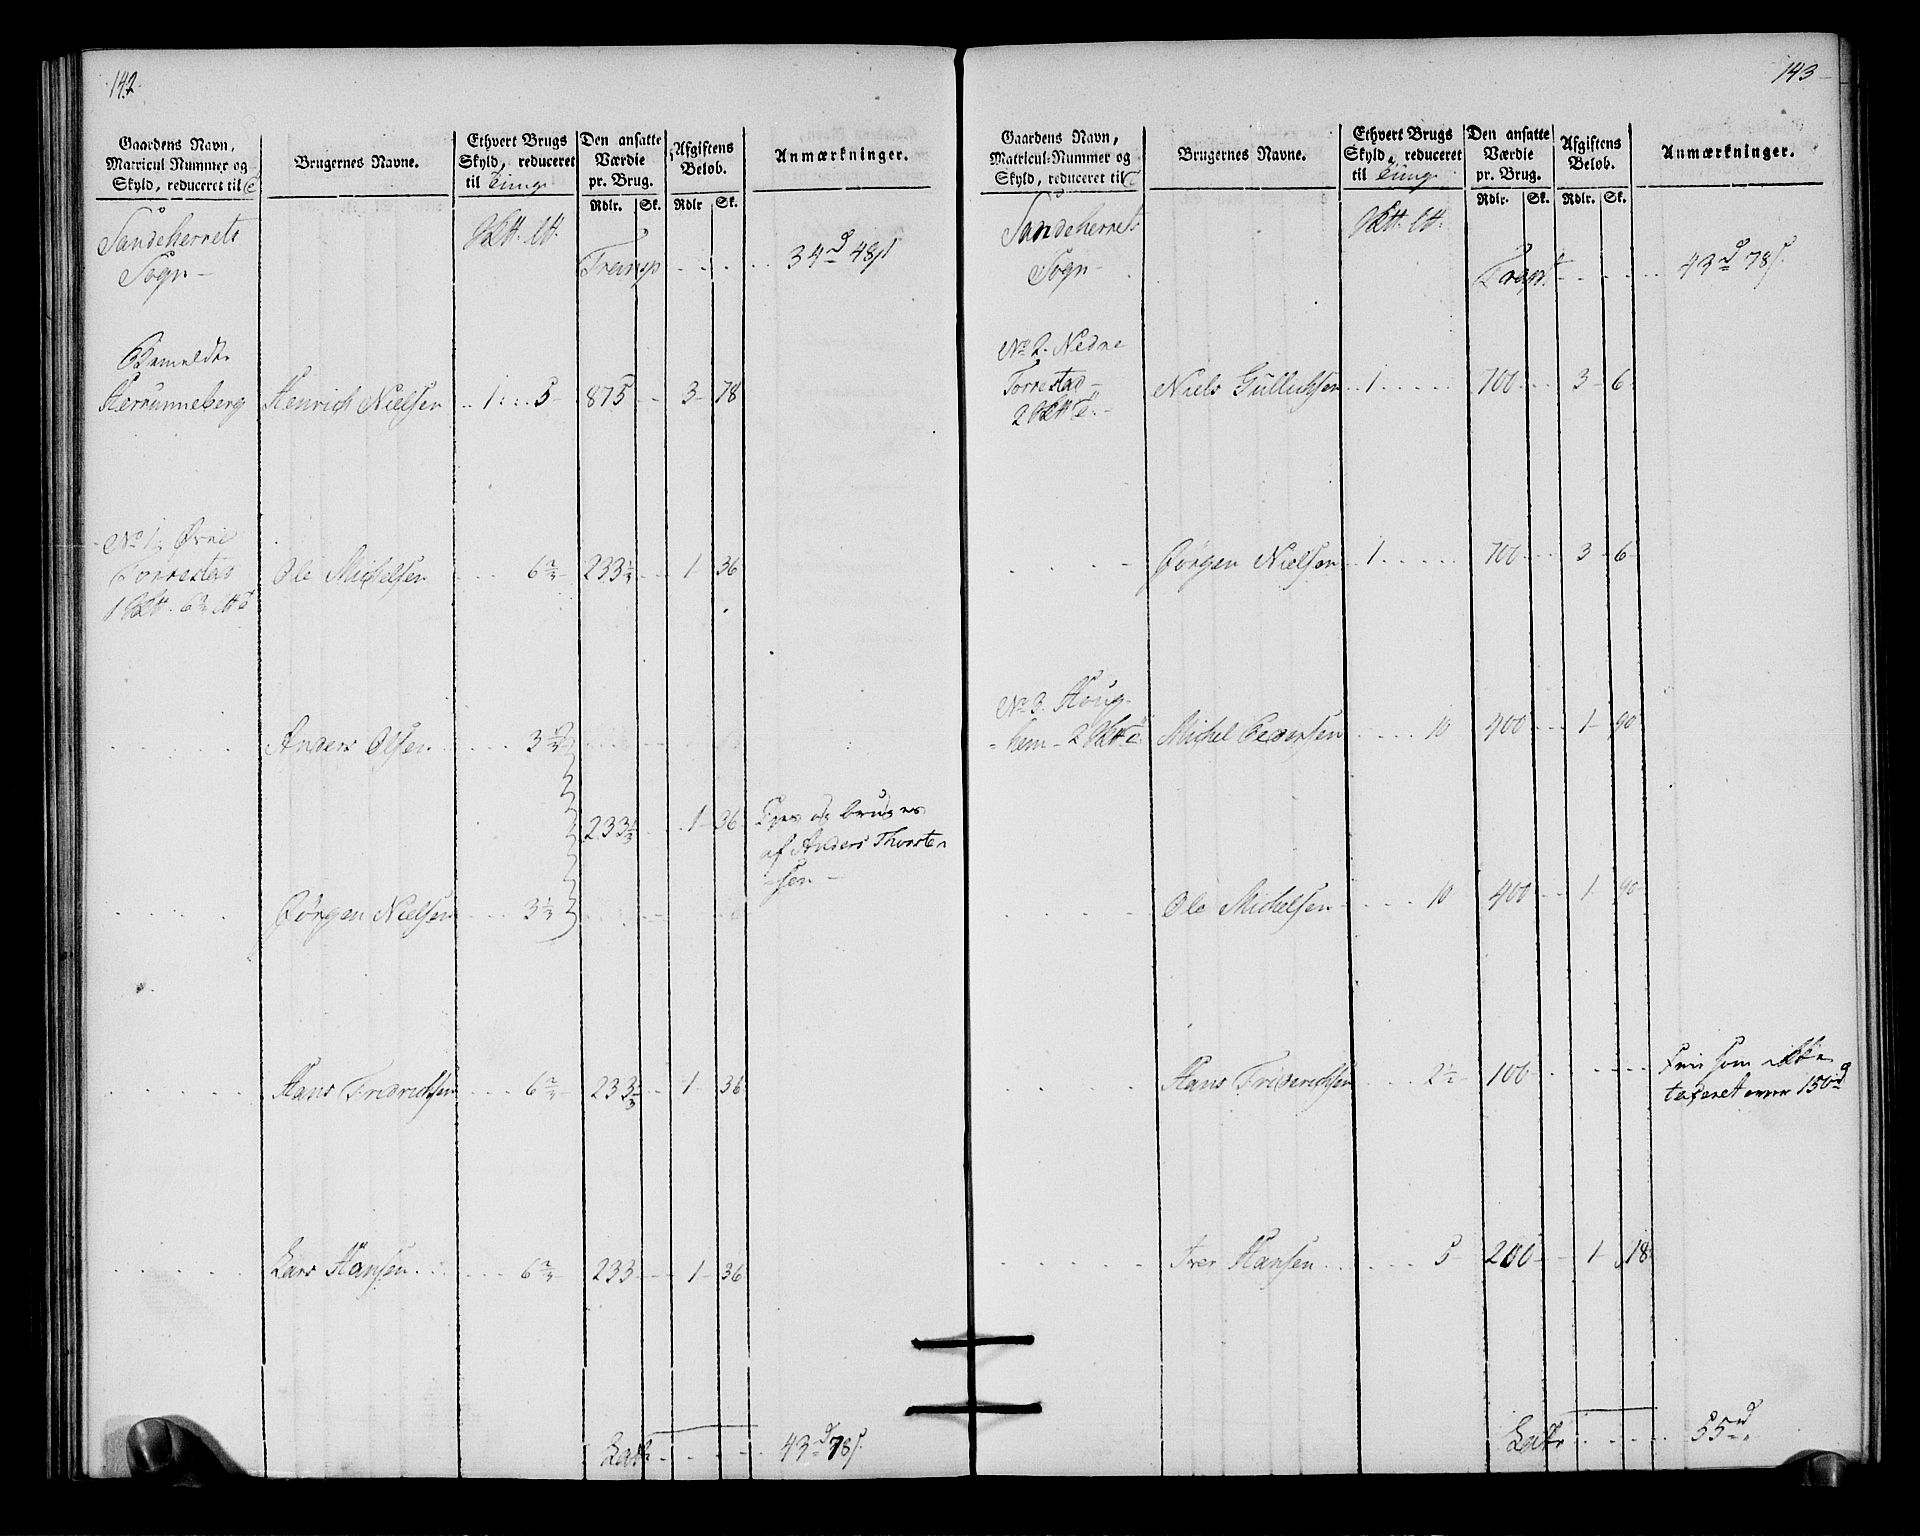 142.
Gaardens Navn,
Matricul-Nummer og
Skyld, reduceret til
Brugernes Navne.
Ethvert Brugs
Skyld, reduceret
til Tung
Den ansatte
Værdie
pr. Brug.
Afgiftens
Beløb.
Anmærkninger.
Rdlr. Sk. Rdlr Sk.
Sandeherrets
Sogn -
34 d 48 s
Bemeldte
Henrich Nielsen 1 5 875 3 78
No 1. Øvne
Torrestad
Ole Michelsen 6 2/4 233 1/3 1 36
Anders Olsen 3 1/2
233 1/3 1 36
Eyes og bruges
af Anders Thorste
sen -
Jørgen Nielsen 3 1/2
Hans Fredrichsen 6 2/4 233 1/3 1 36
Lars Hansen 6 2/4 233 1 36
Lats 43 d 78 s.
143
Gaardens Navn,
Matricul-Nummer og
Skyld, reduceret til
Brugernes Navne.
Ethvert Brugs
Skyld, reduceret
til Tung
Den ansatte
Værdie
pr. Brug.
Afgiftens
Beløb.
Anmærkninger.
Rdlr. Sk. Rdlr. Sk.
Sandeherrets
Sogn -
Transpt 43 d 78 s.
No 2. Nedne
Torrestad -
Niels Gullichsen 1 700 3 6
Jørgen Nielsen 1 700 3 6
No 3. Houg-
hem - 2
Michel Pedersen 10 400 1 90
Ole Michelsen 10 400 1 90
Hans Friderichsen 2 1/2 100
Frie som ikke
taxeret over 150 d
Iver Hansen 5 200 1 18
Lats 55 d